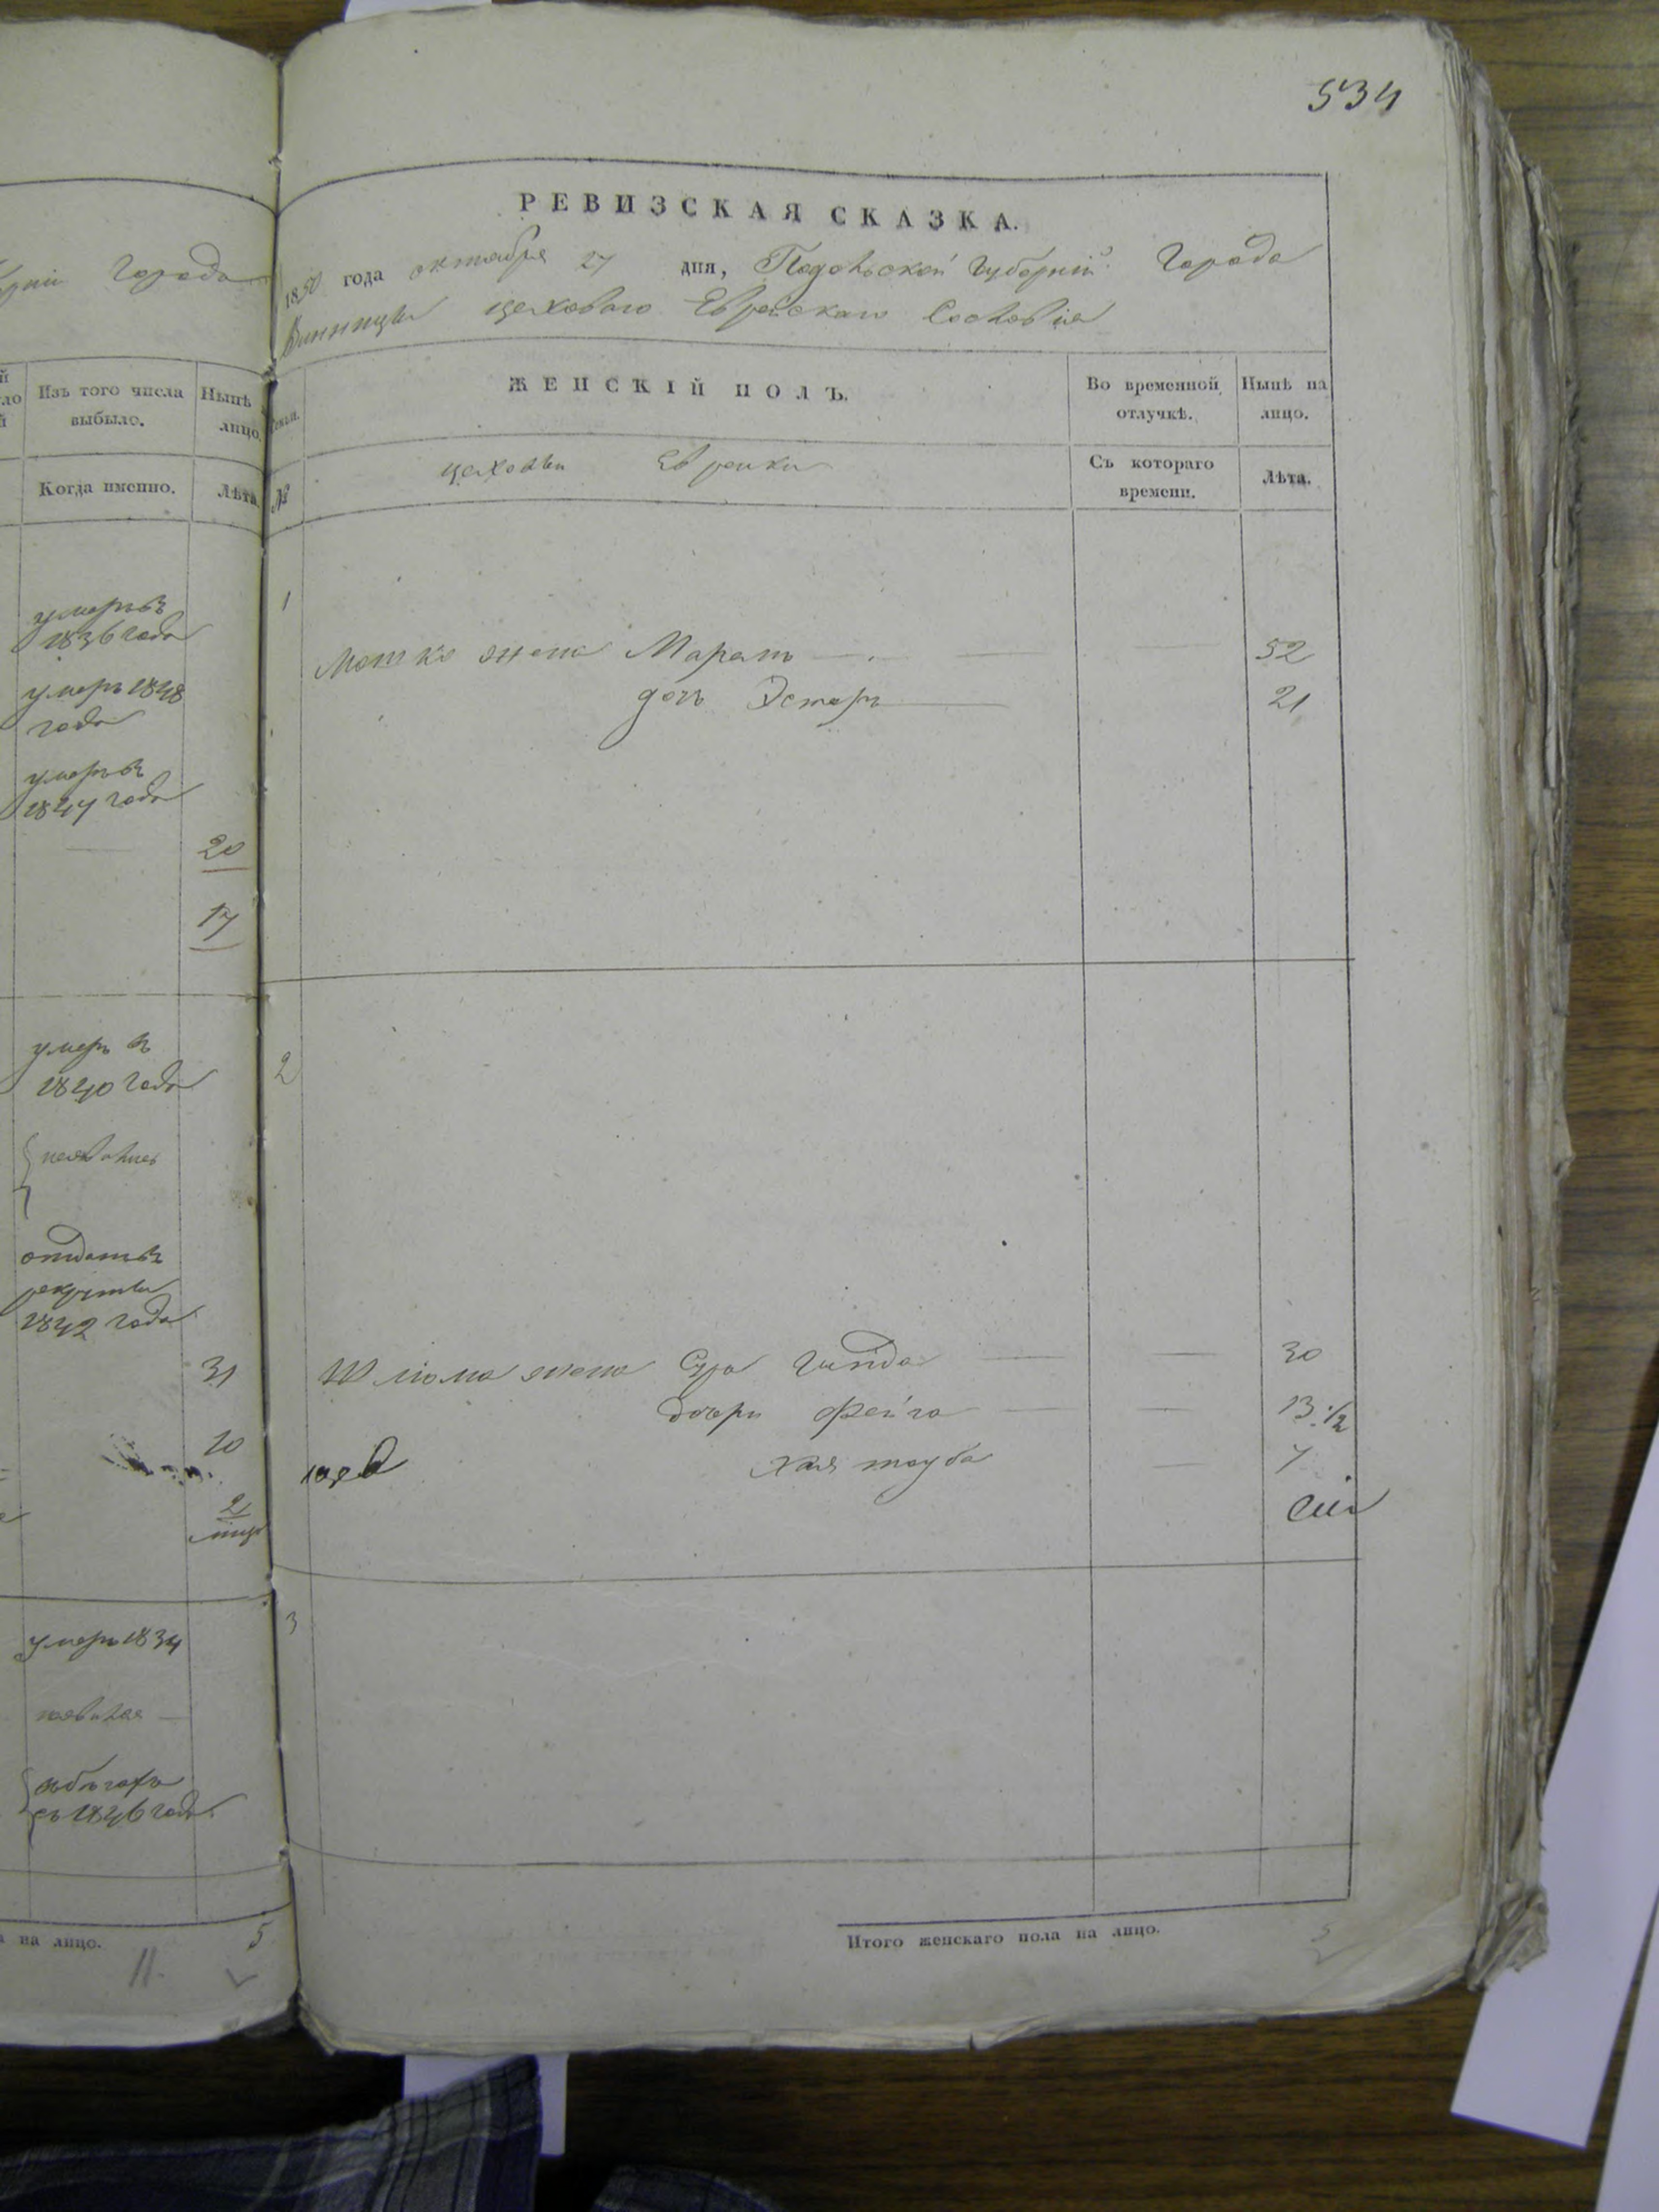 534
рніи Города
Изъ того числа
выбыло.
Нынѣ
лицо.
Когда именно.
Лѣта
умеръ въ
1836 года
умеръ 1848
года
умеръ въ
1847 года
20
17
умеръ въ
1840 года
отданъ въ
рекруты
1842 года
31
10
2
умеръ 1834
въ бѣгахъ
съ 1846 года
на лицо.
5
11.
РЕВИЗСКАЯ СКАЗКА.
1850 года октября 27 дня, Подольской Губерніи Города
Винницы цеховаго Еврейскаго Сословія
ЖЕНСКІЙ ПОЛЪ.
Во временной
отлучкѣ.
Нынѣ на
лицо.
№
цеховыи Евреики
Съ котораго
времени.
Лѣта.
1
Мошко жена Марам 52
дочь Эстеръ 21
2
Шліома жена Сура Гинда 30
дочери Фейга 13 1/2
Хая тауба 7
3
Итого женскаго пола на лицо.
5